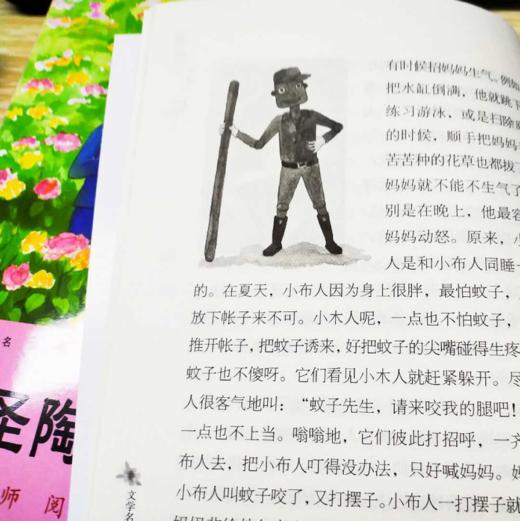 有时候招妈妈生气。例如
把水缸倒满，他就跳下
练习游泳，或是扫除
的时候，顺手把妈妈
苦苦种的花草也都拔
妈妈就不能不生气了
别是在晚上，他最容
妈妈动怒。原来，小
人是和小布人同睡一
的。在夏天，小布人因为身上很胖，最怕蚊子，
放下帐子来不可。小木人呢，一点也不怕蚊子，
推开帐子，把蚊子诱来，好把蚊子的尖嘴碰得生疼
蚊子也不傻呀。它们看见小木人就赶紧躲开。尽
人很客气地叫：“蚊子先生，请来咬我的腿吧！
一点也不上当。嗡嗡地，它们彼此打招呼，一齐
布人去，把小布人叮得没办法，只好喊妈妈。妈
小布人叫蚊子咬了，又打摆子。小布人一打摆子就
文学名
名
圣陶
师 阅